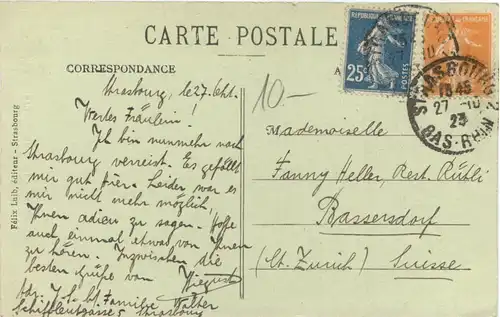 CARTE POSTALE
CORRESPONDANCE
A
RÉPUBLIQUE
25c
POSTES
STRASBOURG
18 45
27 -10
23
BAS-RHIN
10-
Félix Luib, éditeur - Strasbourg
Strasbourg, le 27. Okt.
Wertes Fräulein!
Ich bin nunmehr nach
Strasbourg verreist. Es gefällt
mir gut hier. Leider war es
mir nicht mehr möglich,
Ihnen adieu zu sagen. Hoffe
auch einmal etwas von Ihnen
zu hören. Inzwischen die
besten Grüße von
Adr. Familie Walther
Schiffleutgasse 5 Strasbourg
Mademoiselle
Fanny Heller, Rest. Rütli
Bassersdorf
(Ct. Zürich) Suisse